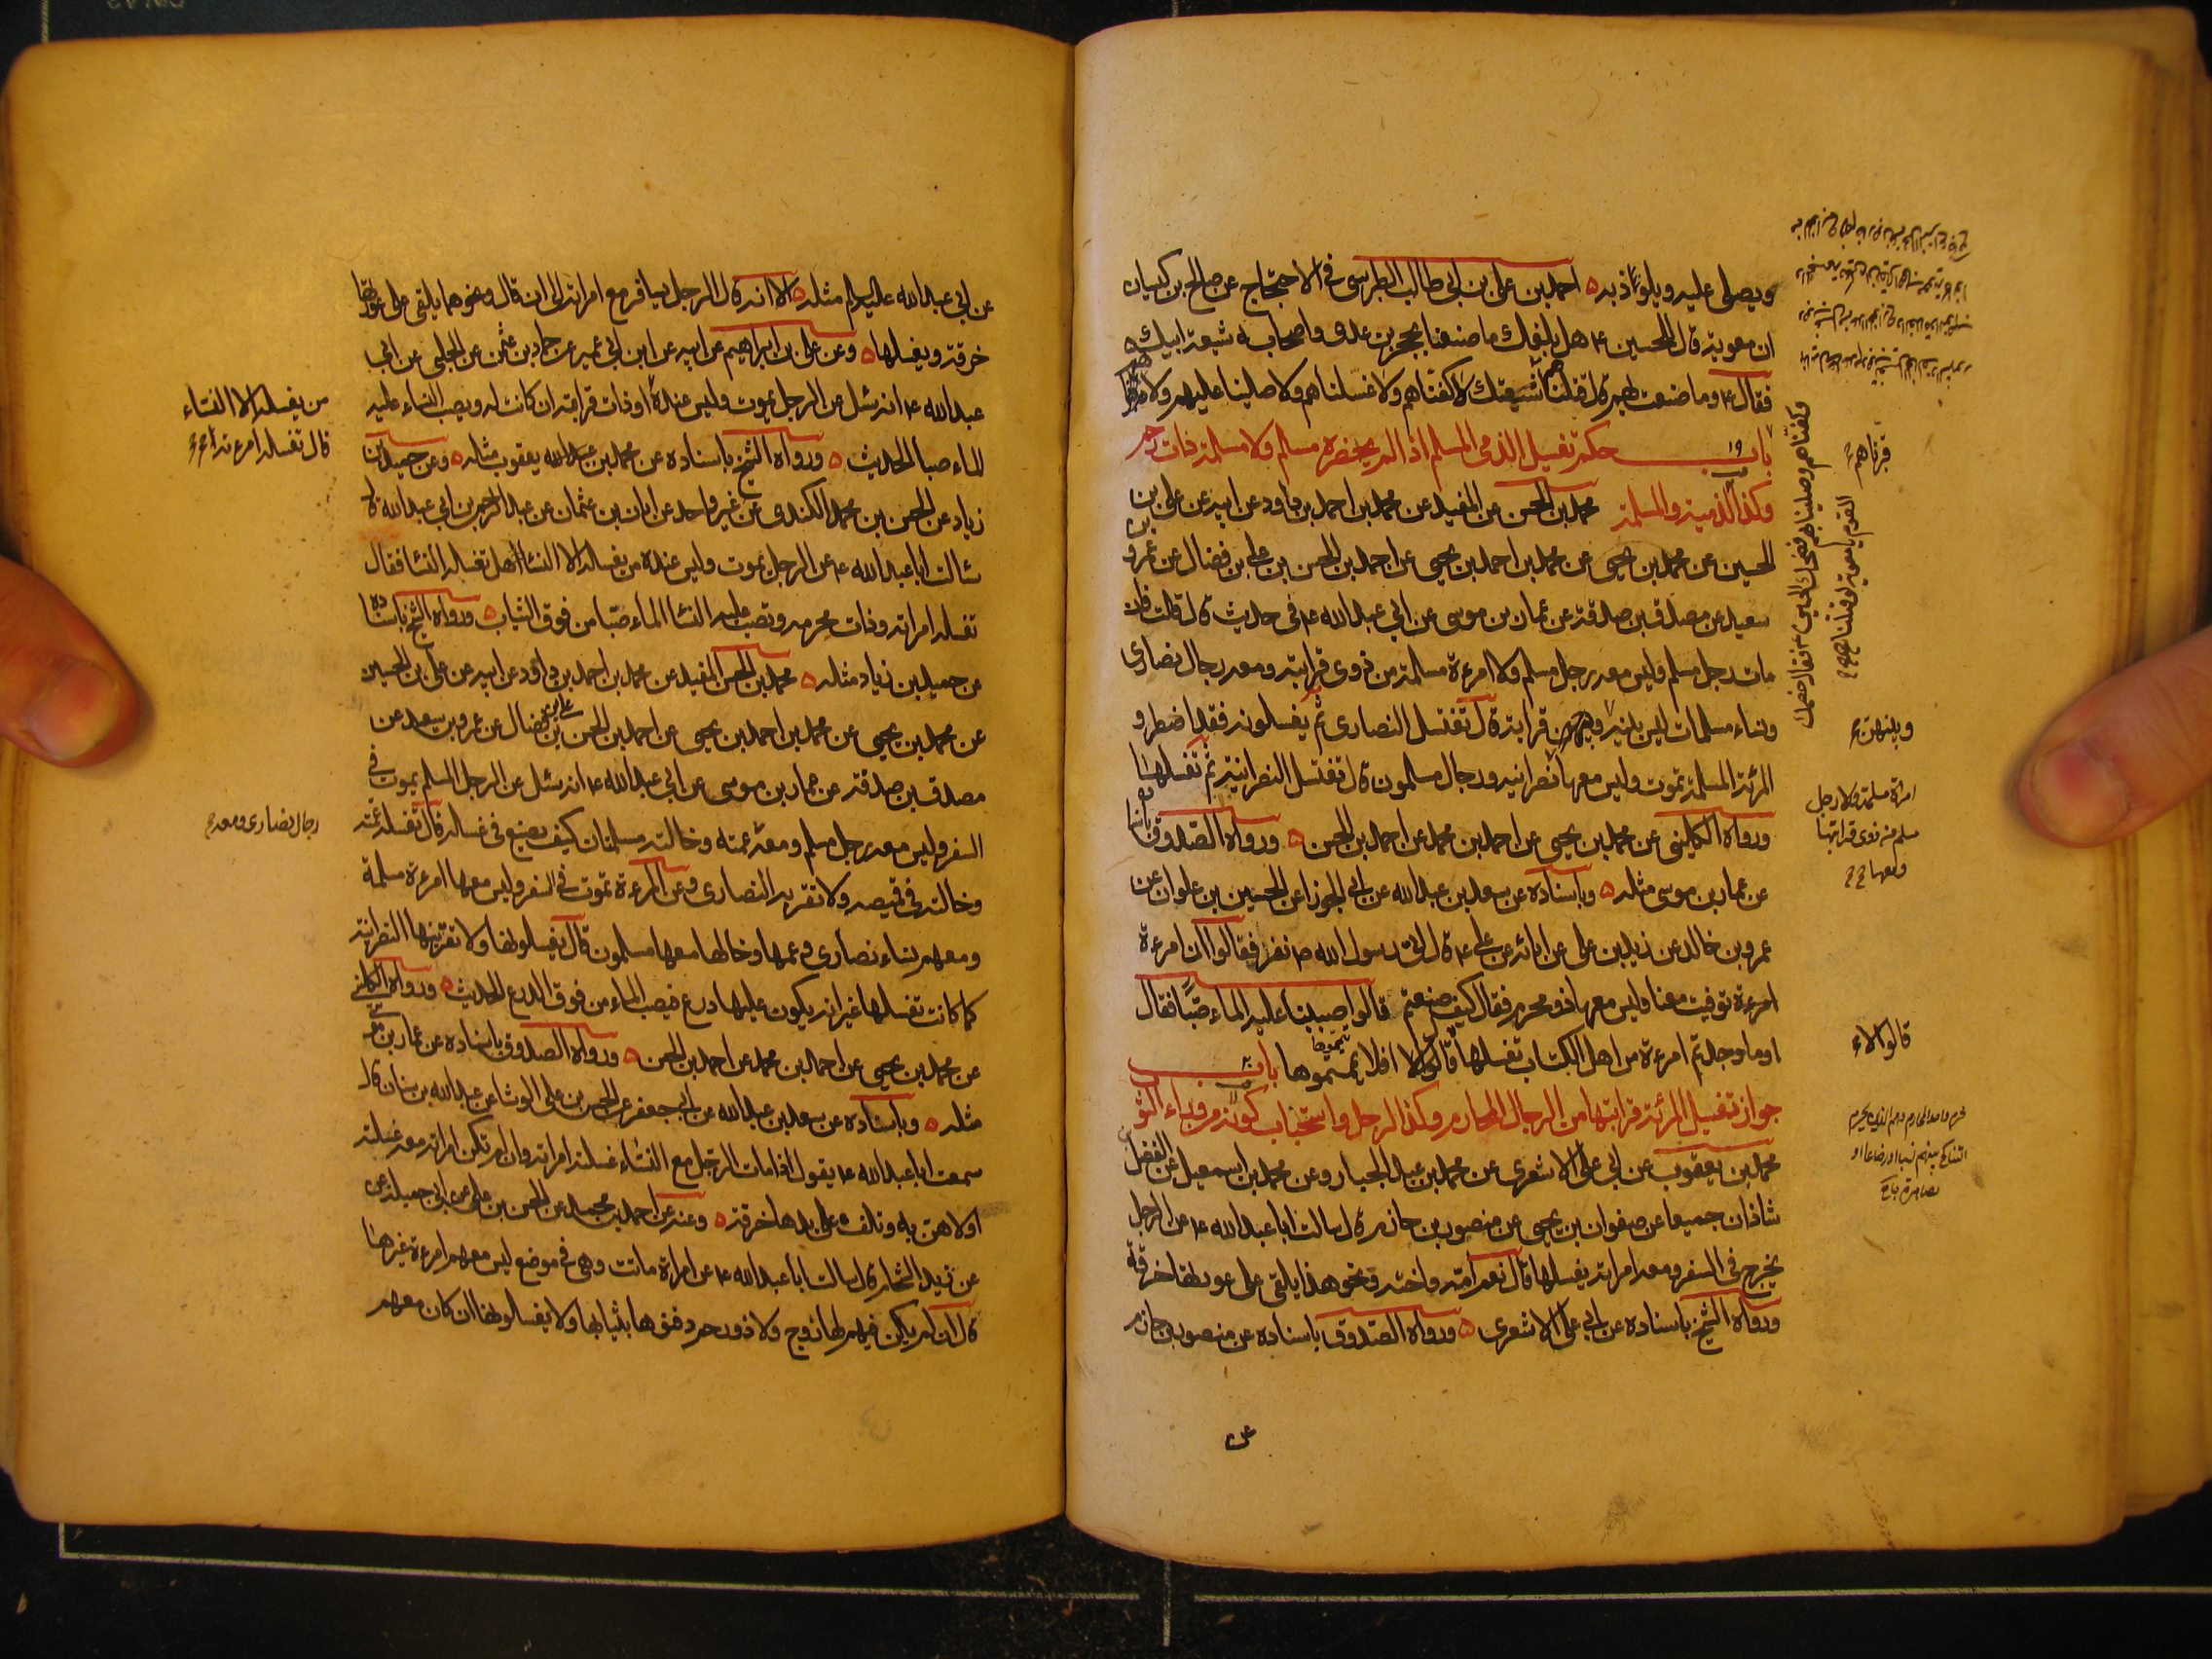 ويصلى عليه ويلوذ به احمد بن على بن ابى طالب الطبرسى فى الاحتجاج عن صالح بن كيسان
ان معوية قال للحسين ع هل بلغك ما صنعنا بحجر بن عدى واصحابه شيعة ابيك
فقال ع وما صنعت بهم قال قتلناهم
شيعتك لا كفناهم ولا غسلناهم ولا صلينا عليهم ولا
باب حكم تغسيل الذمى المسلم اذا لم يحضره مسلم ولا مسلمة ذات رحم
وكذا الذمية والمسلمة محمد بن الحسن عن المفيد عن محمد بن احمد بن داود عن ابيه عن على بن
الحسين عن محمد بن يحيى عن محمد بن احمد بن يحيى عن احمد بن الحسن بن على بن فضال عن عمرو بن
سعيد عن مصدق بن صدقة عن عمار بن موسى عن ابى عبد الله ع فى حديث قال قلت فان
مات رجل مسلم وليس معه رجل مسلم ولا امرءة مسلمة من ذوى قرابته ومعه رجال نصارى
ونساء مسلمات ليس بينه وبينهن قرابة قال تغتسل النصارى ثم يغسلونه فقد اضطر و
المرئة المسلمة تموت وليس معها نصرانية ورجال مسلمون قال تغتسل النصرانية ثم تغسلها
ورواه الكلينى عن محمد بن يحيى عن احمد بن محمد عن احمد بن الحسن ورواه الصدوق باسناده
عن عمار بن موسى مثله وباسناده عن سعد بن عبد الله عن ابى الجوزا عن الحسين بن علوان عن
عمرو بن خالد عن زيد بن على عن ابائه عن على ع قال اتى رسول الله ص نفر فقالوا ان امرءة
امرءة توفيت معنا وليس معها ذو محرم فقال كيف صنعتم قالوا صببنا عليه الماء صبا فقال
اوما وجدتم امرءة من اهل الكتاب تغسلها قالوا لا افلا يممتموها باب
جواز تغسيل المرئة قرابتها من الرجال المحارم وكذا الرجل واستحباب كونه من وراء الثوب
محمد بن يعقوب عن ابى على الاشعرى عن محمد بن عبد الجبار وعن محمد بن اسمعيل عن الفضل بن
شاذان جميعا عن صفوان بن يحيى عن منصور بن حازم قال سالت ابا عبد الله ع عن الرجل
يخرج فى السفر ومعه امراته يغسلها قال نعم امه واخته ونحو هذا يلقى على عورتها خرقة
ورواه الشيخ باسناده عن ابى على الاشعرى ورواه الصدوق باسناده عن منصور بن حازم
عن
وكفناهم وصلينا عليهم فضحك الحسين ع فقال خصمك
القوم يا معوية لو قتلنا
قبرناهم
وبينهن
امراة مسلمة ولا رجل
مسلم من ذوى قراباتها
ومعها
قالوا لا
التناكح بينهم نسبا او رضاعا او
عن ابى عبد الله عليه السلم مثله الا انه قال الرجل يسافر مع امراته الى ان قال ونحوهما يلقى على عورتها
خرقة ويغسلها وعن على بن ابراهيم عن ابيه عن ابن ابى عمير عن حماد بن عثمن عن الحلبى عن ابى
عبد الله ع انه سئل عن الرجل يموت وليس عنده او ذات قرابته ان كانت له ويصب النساء عليه
الماء صبا الحديث ورواه الشيخ باسناده عن محمد بن يعقوب مثله وعن حميد بن
زياد عن الحسن بن محمد الكندى عن غير واحد عن ابان بن عثمان عن عبد الرحمن بن ابى عبد الله قال
سئالت ابا عبد الله ع عن الرجل يموت وليس عنده من يغسله الا النسا هل تغسله النسا فقال
تغسله امراته وذات محرمه وتصب عليه النسا الماء صبا من فوق الثياب ورواه الشيخ باسناده
عن حميد بن زياد مثله محمد بن الحسن المفيد عن محمد بن احمد بن داود عن ابيه عن على بن الحسين
عن محمد بن يحيى عن محمد بن احمد بن يحيى عن احمد بن الحسن بن على بن فضال عن عمرو بن سعد عن
مصدق بن صدقة عن عمار بن موسى عن ابى عبد الله ع انه سئل عن الرجل المسلم يموت فى
السفر وليس معه رجل مسلم ومعه عمته وخالته مسلمتان كيف يصنع فى غسله قال تغسله عمته
وخالته فى قميصه ولا تقربه النصارى وعن المرءة تموت فى السفر وليس معها امرءة مسلمة
ومعهم نساء نصارى وعمها وخالها معها مسلمون قال يغسلونها ولا تقربنها النصرانية
كما كانت تغسلها غير انه يكون عليها درع فيصب الماء من فوق الدرع الحديث ورواه الكلينى
عن محمد بن يحيى عن احمد بن محمد عن احمد بن الحسن ورواه الصدوق باسناده عن عمار بن موسى
مثله وباسناده عن سعد بن عبد الله عن ابى جعفر عن الحسن بن على الوشا عن عبد الله بن سنان قال
سمعت ابا عبد الله ع يقول اذا مات الرجل مع النساء غسلته امراته وان لم تكن امراته معه غسلته
اولاهن به وتلف على يدها خرقة وعنه عن احمد بن محمد عن الحسن بن على عن ابى جميلة عن
عن زيد الشحام قال سالت ابا عبد الله ع عن امراة ماتت وهى فى موضع ليس معهم امرءة غيرها
قال ان لم يكن فيهم لها زوج ولا ذو رحم دفنوها بثيابها ولا يغسلونها وان كان معهم
من يغسله الا النساء
قال تغسله امرءته
رجال نصارى ومعه